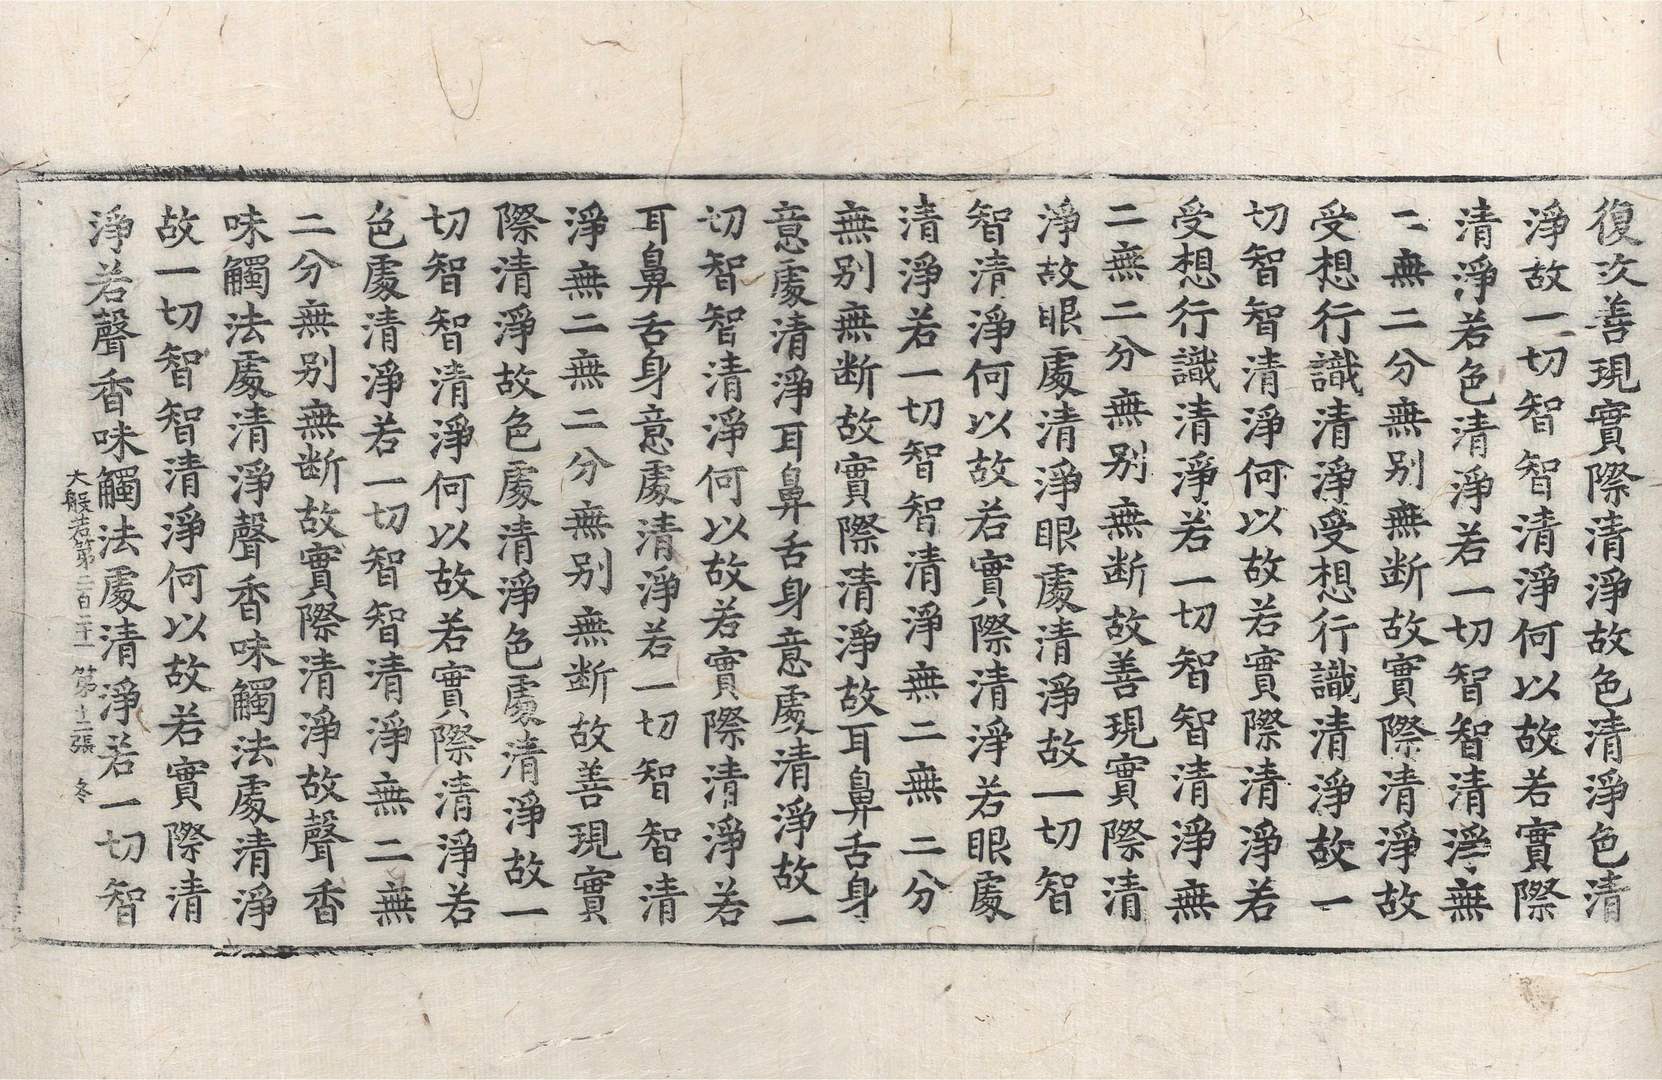 復次善現實際清淨故色清淨色清
淨故一切智智清淨何以故若實際
清淨若色清淨若一切智智清淨無
二無二分無別無断故實際清淨故
受想行識清淨受想行識清淨故一
切智智清淨何以故若實際清淨若
受想行識清淨若一切智智清淨無
二無二分無別無断故善現實際清
淨故眼處清淨眼處清淨故一切智
智清淨何以故若實際清淨若眼處
清淨若一切智智清淨無二無二分
無別無断故實際清淨故耳鼻舌身
意處清淨耳鼻舌身意處清淨故一
切智智清淨何以故若實際清淨若
耳鼻舌身意處清淨若一切智智清
淨無二無二分無別無断故善現實
際清淨故色處清淨色處清淨故一
切智智清淨何以故若實際清淨若
色處清淨若一切智智清淨無二無
二分無別無断故實際清淨故聲香
味觸法處清淨聲香味觸法處清淨
故一切智智清淨何以故若實際清
淨若聲香味觸法處清淨若一切智
大般若第二百二十一 第十二張 冬